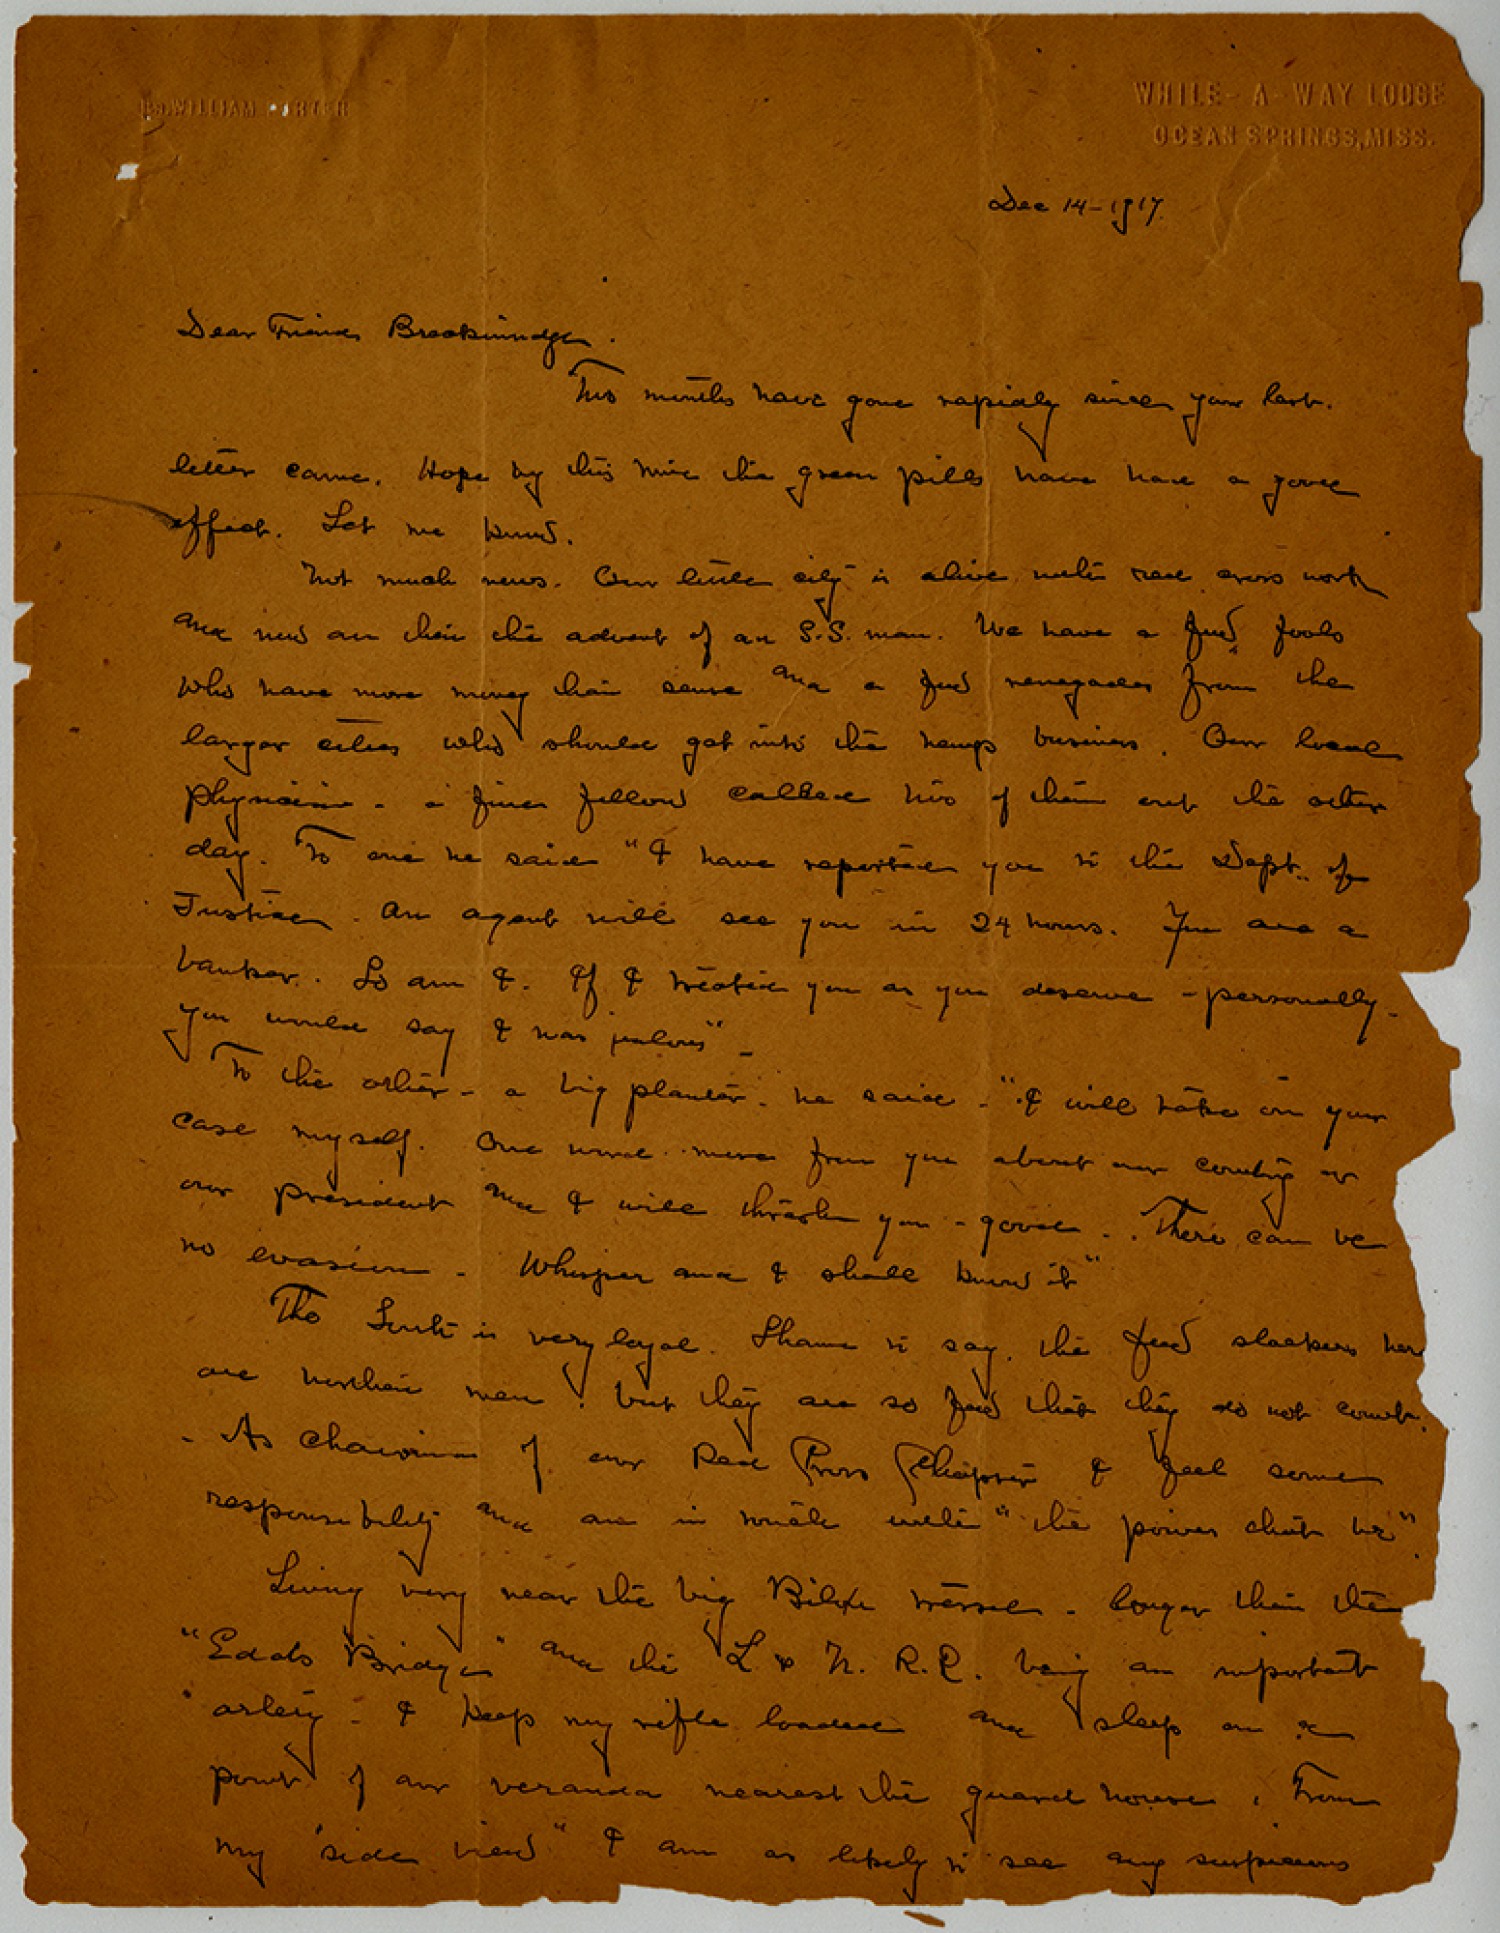 Dr. WILLIAM PORTER
WHILE-A-WAY LODGE
OCEAN SPRINGS, MISS.
Dec 14-1917.
Dear Friend Breckinridge.
Two months have gone rapidly since your last.
letter came. Hope by this time the green pills have had a good
effect. Let me know.
Not much news. Our little city is alive with red cross work
and now and then the advent of an S.S. man. We have a few fools
who have more money than sense and a few renegades from the
larger cities who should get into the hemp business. Our local
physician - a fine fellow called two of them out the other
day. To one he said "I have reported you to the Dept. of
Justice. An agent will see you in 24 hours. You are a
banker. So am I. If I treated you as you deserve - personally -
you would say I was jealous" -
To the other - a big planter - he said - "I will take on your
case myself. One word more from you about our country or
our president and I will thrash you - good - . There can be
no evasion - Whisper and I shall know it"
The South is very loyal. Shame to say, the few slackers here
are northern men, but they are so few that they do not count.
- As chairman of our Red Cross Chapter I feel some
responsibility and am in touch with "the powers that be".
Living very near the big Biloxi trestle - longer than the
"Eads Bridge" and the L & N. R.R. being an important
artery - I keep my rifle loaded and sleep on a
point of our veranda nearest the guard house. From
my "side view" I am as likely to see any suspicious